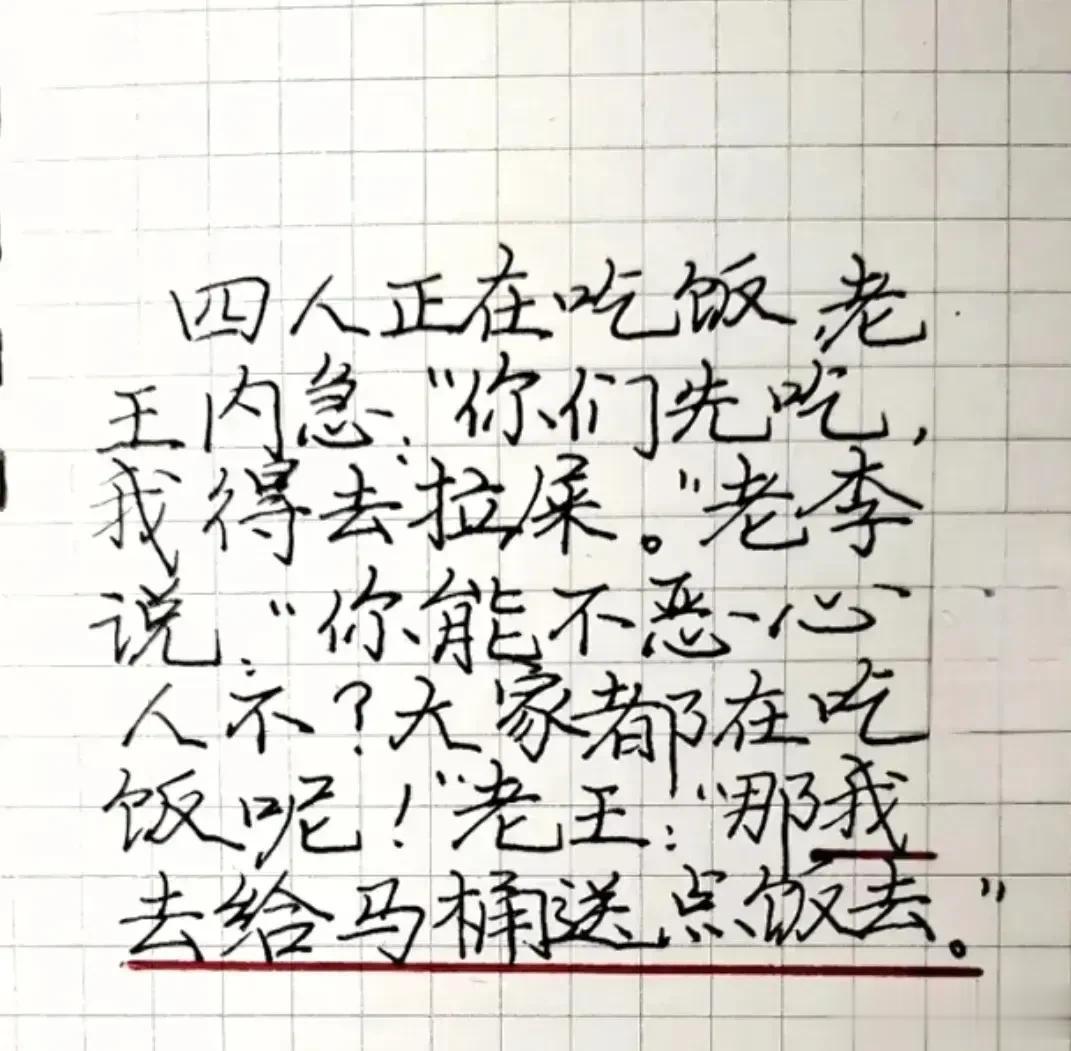 四人正在吃饭,老
王内急:“你们先吃,
我得去拉屎。”老李
说:“你能不恶心
人不?大家都在吃
饭呢!”老王:“那我
去给马桶送点饭去。”